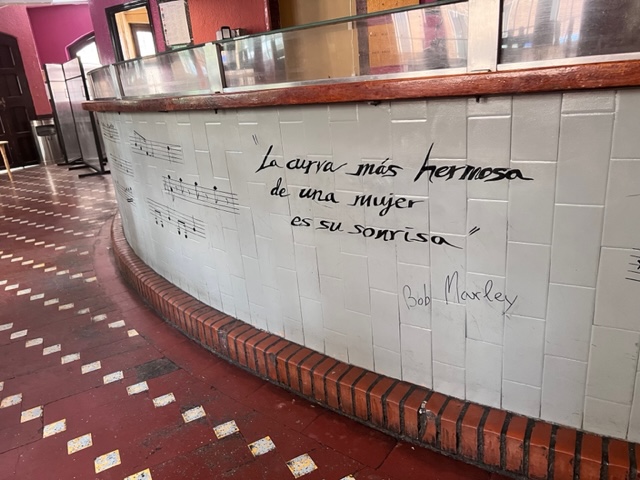 "La curva más hermosa
de una mujer
es su sonrisa"
Bob Marley